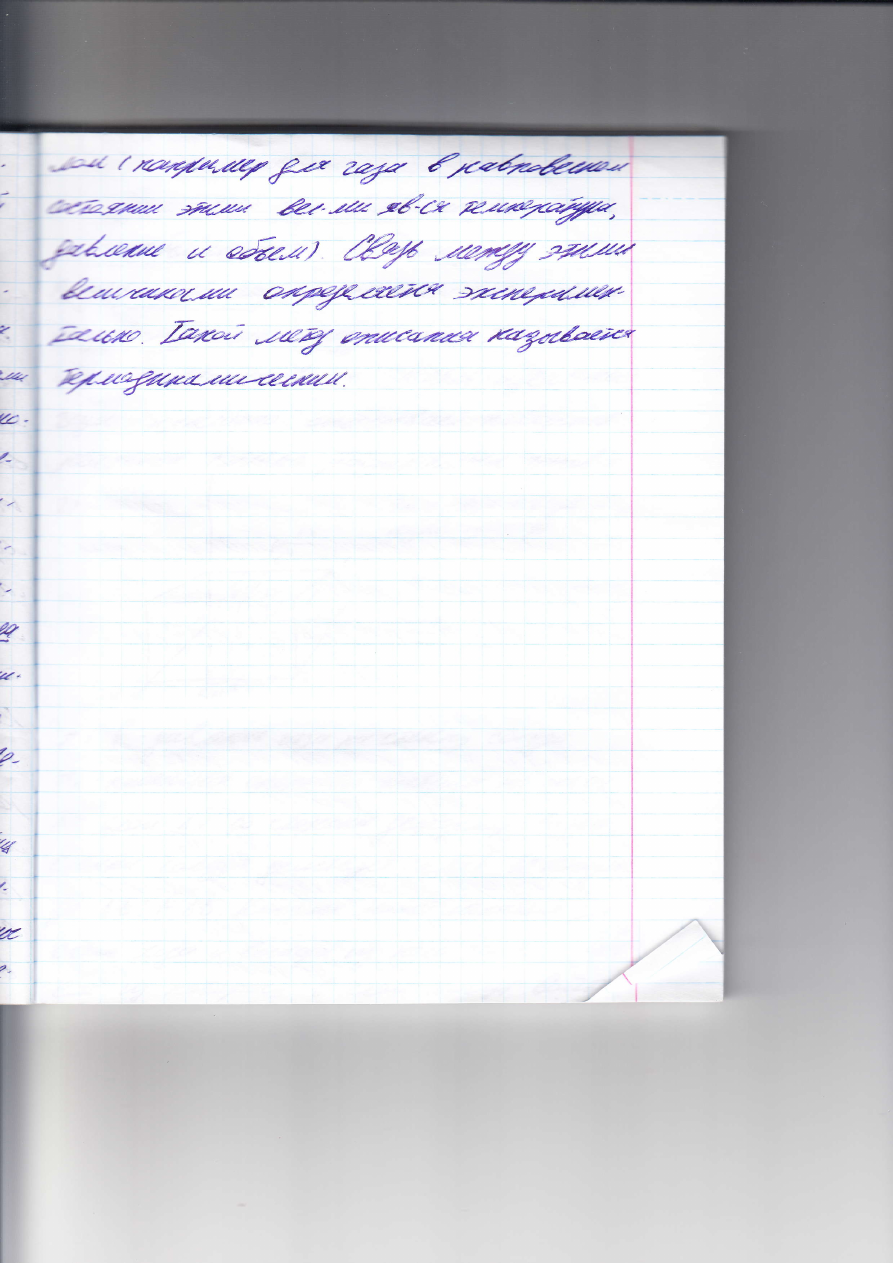 лом (например для газа в равновесном
состоянии этими вел-ми яв-ся температура,
давление и объем). Связь между этими
величинами определяется эксперимен-
тально. Такой метод описания называется
термодинамическим.